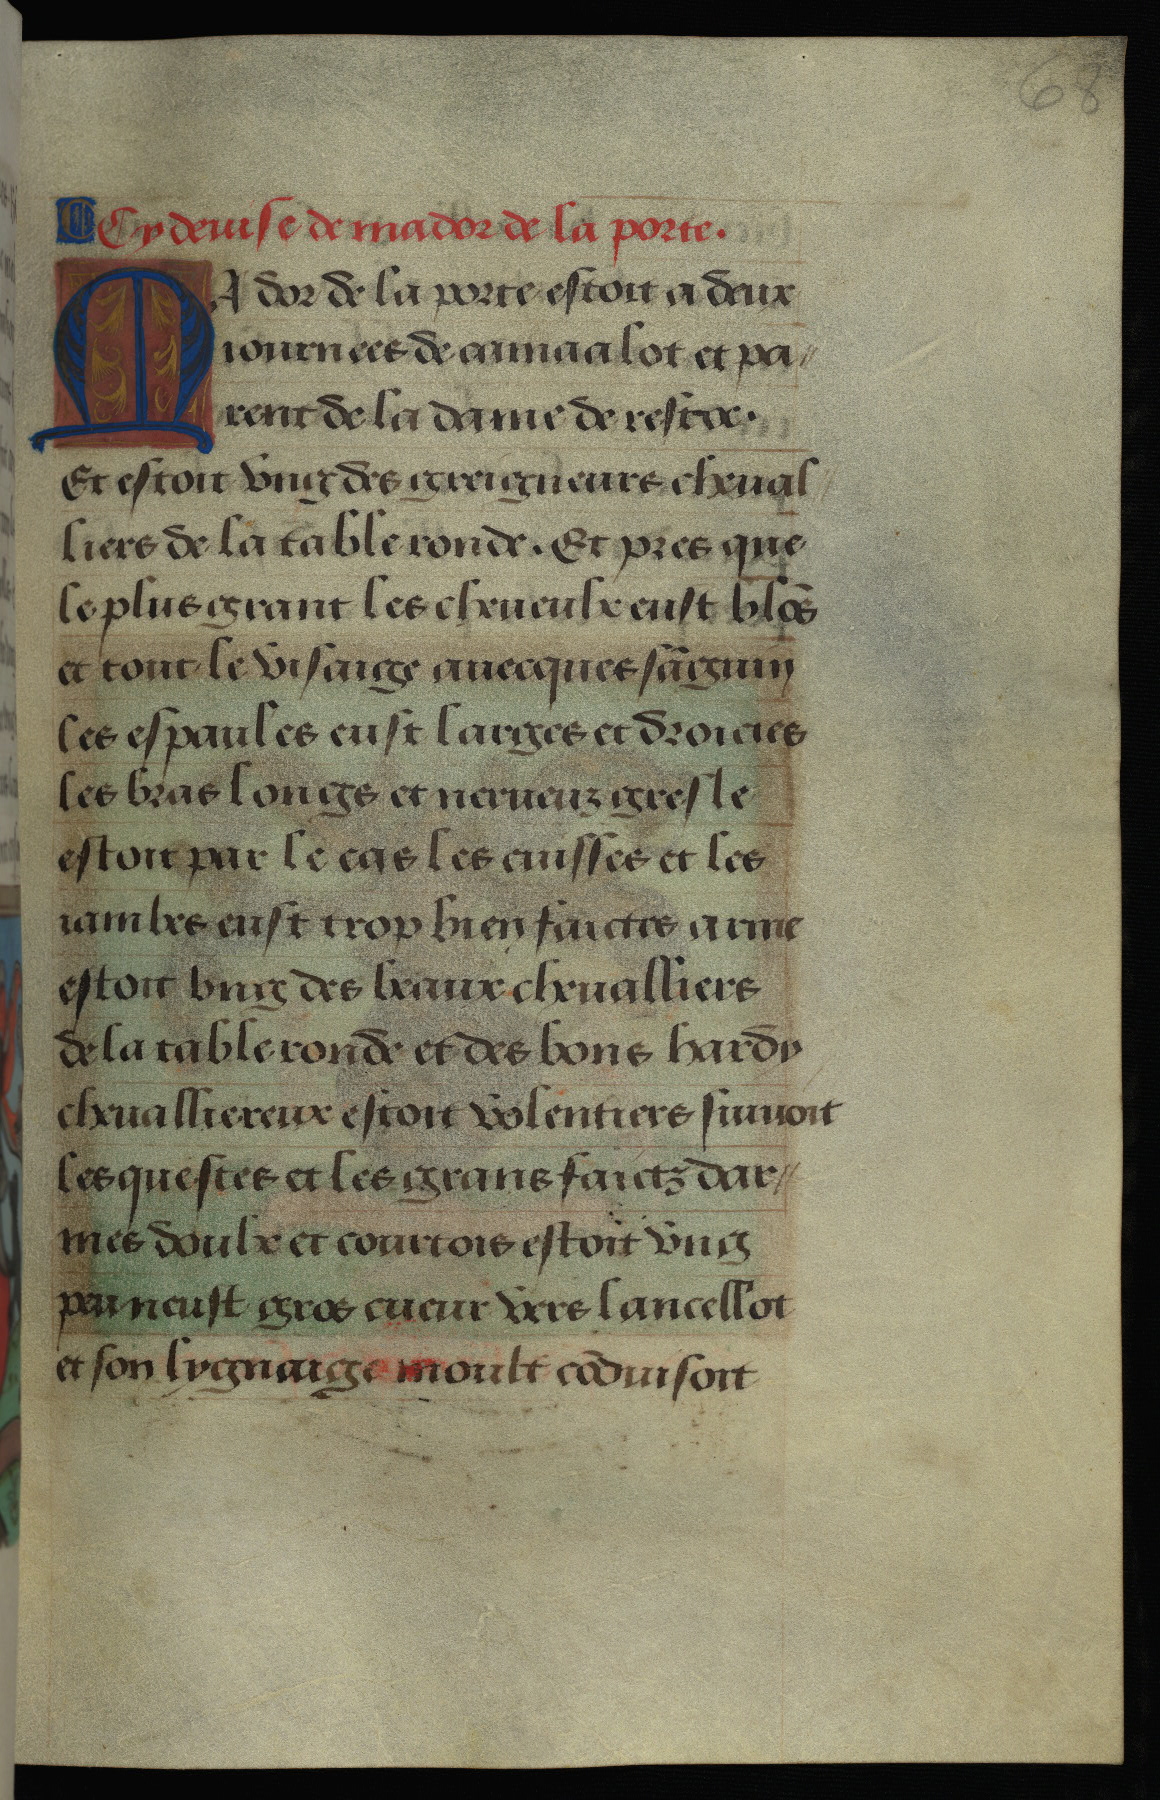 68
Cy deuise de mador de la porte.
MAdor de la porte estoit a deux
iournees de camaalot et pa//
rent de la dame de restoc.
Et estoit vng des greigneurs cheual//
liers de la table ronde. Et pres que
le plus grant les cheueulx eust blōs
et tout le visaige auecques sāguin
les espaules eust larges et droictes
les bras longs et nerueuz gresle
estoit par le cas les cuisses et les
iambes eust trop bien faictes arme
estoit vng des beaux cheualliers
de la table ronde et des bons hardy
cheuallereux estoit volentiers suiuoit
les questes et les grans faictz dar//
mes doulx et courtois estoit vng
peu neust gros cueur vers lancellot
et son lygnaige moult cōduisoit